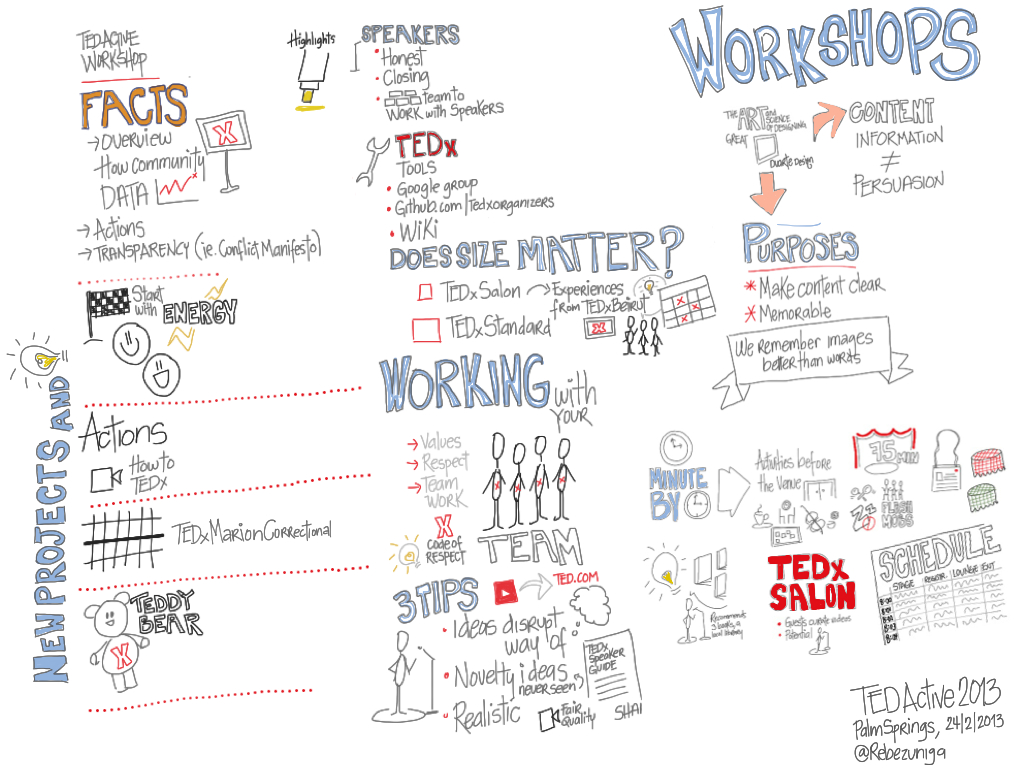 TEDACTIVE
WORKSHOP
FACTS
→ OVERVIEW
How community
DATA
X
→ Actions
→ TRANSPARENCY (ie. Conflict Manifesto)
Start
with ENERGY
NEW PROJECTS AND
Actions
How to
TEDx
TEDxMarionCorrectional
TEDDY
BEAR
X
Highlights
SPEAKERS
• Honest
• Closing
• team to
WORK with Speakers
TEDx
TOOLS
• Google group
• Github.com/Tedxorganizers
• WiKi
DOES SIZE MATTER?
TEDxSalon → Experiences
from TEDxBeirut
TEDxStandard
X
WORKING with
YOUR
→ Values
→ Respect
→ Team
WORK
X
Code of
RESPECT
TEAM
3 TIPS
TED.COM
• Ideas disrupt
way of
• Novelty ideas
never seen
• Realistic
Fair
Quality
TEDx
Speaker
GUIDE
SHAI
WORKSHOPS
THE ART and
SCIENCE
OF DESIGNING
GREAT
Duarte Design
CONTENT
INFORMATION
≠
PERSUASION
PURPOSES
* Make content clear
* Memorable
We Remember images
better than words
MINUTE
BY
Activities before
the Venue
75 MIN
FLASH
MOBS
ZZ
Recommends
books, a
local library
TEDx
SALON
• Guests curate videos
• Potential
SCHEDULE
STAGE REGISTR. LOUNGE TENT
TEDActive 2013
Palm Springs, 24/2/2013
@Rebezuniga